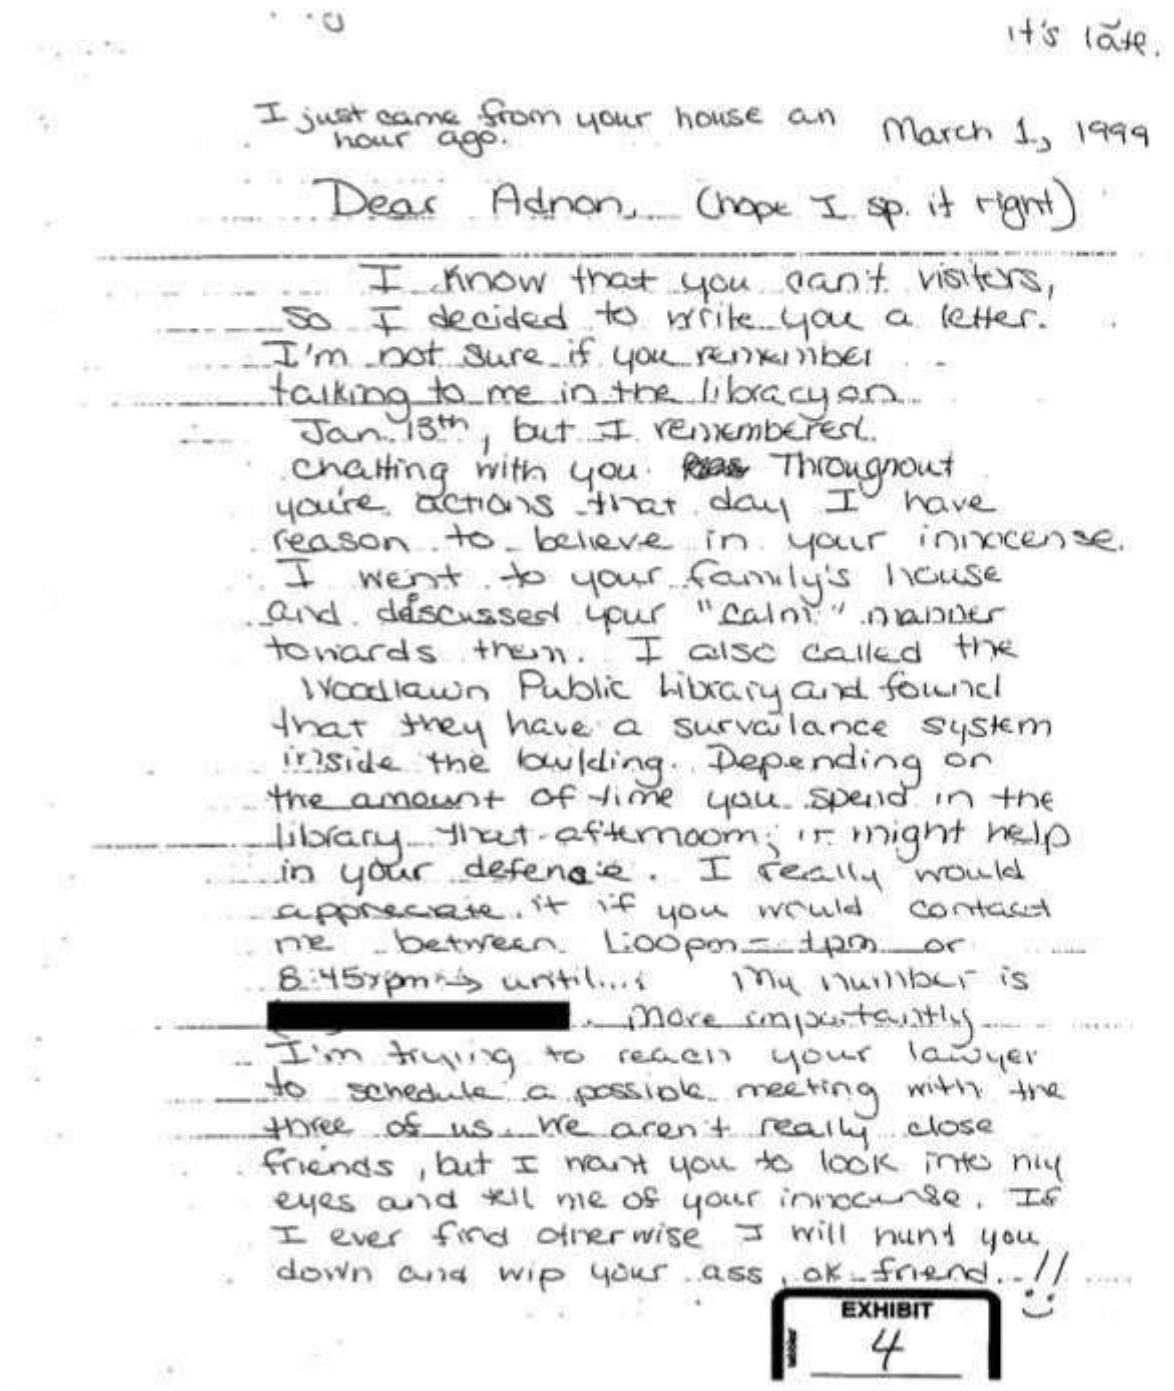 it's late.
I just came from your house an
hour ago.
March 1, 1999
Dear Adnan, (hope I sp. it right)
I know that you can't visitors,
so I decided to write you a letter.
I'm not sure if you remember
talking to me in the library on
Jan. 13th, but I remembered
chatting with you. Throughout
you're actions that day I have
reason to believe in your innocense.
I went to your family's house
and discussed your "calm" manner
towards them. I also called the
Woodlawn Public Library and found
that they have a survailance system
inside the building. Depending on
the amount of time you spend in the
library that afternoom, it might help
in your defense. I really would
appreciate it if you would contact
me between 1:00pm - 4pm or
8:45pm → until.... My number is
. More importantly
I'm trying to reach your lawyer
to schedule a possible meeting with the
three of us. We aren't really close
friends, but I want you to look into my
eyes and tell me of your innocense. If
I ever find otherwise I will hunt you
down and wip your ass, ok friend. !!
EXHIBIT
4